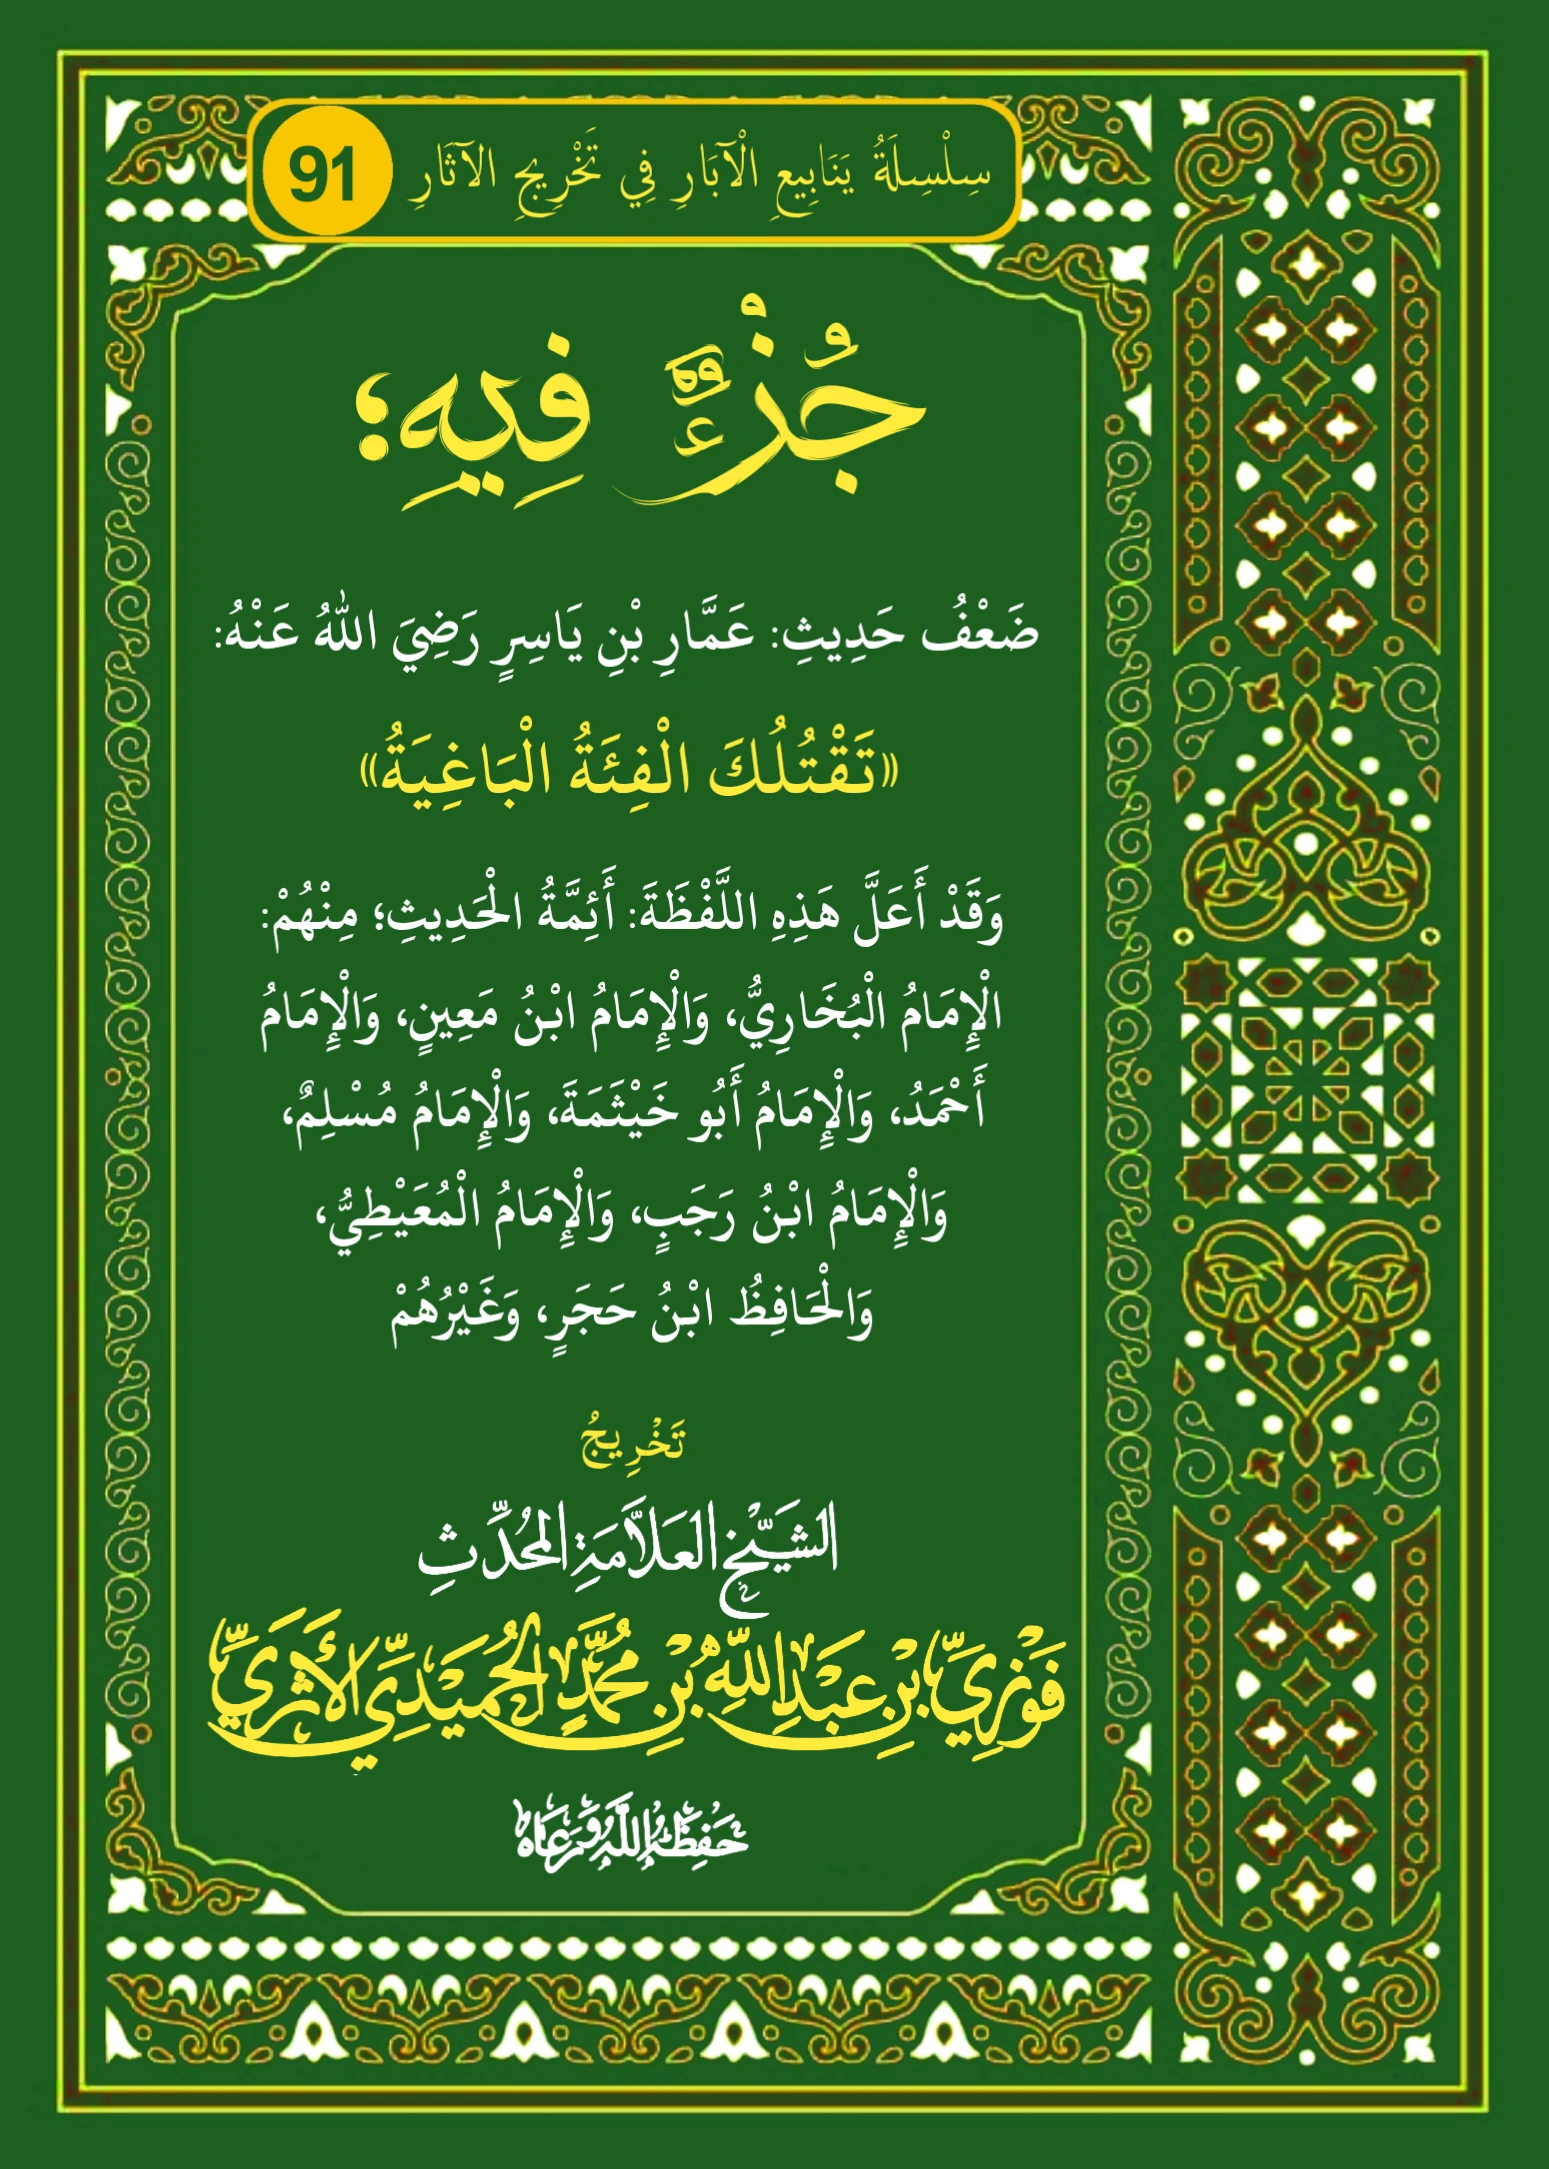 سِلْسِلَةُ يَنَابِيعِ الْآبَارِ فِي تَخْرِيجِ الآثَارِ 91
جُزْءٌ فِيهِ؛
ضَعْفُ حَدِيثِ: عَمَّارِ بْنِ يَاسِرٍ رَضِيَ اللهُ عَنْهُ:
«تَقْتُلُكَ الْفِئَةُ الْبَاغِيَةُ»
وَقَدْ أَعَلَّ هَذِهِ اللَّفْظَةَ: أَئِمَّةُ الْحَدِيثِ؛ مِنْهُمْ:
الْإِمَامُ الْبُخَارِيُّ، وَالْإِمَامُ ابْنُ مَعِينٍ، وَالْإِمَامُ
أَحْمَدُ، وَالْإِمَامُ أَبُو خَيْثَمَةَ، وَالْإِمَامُ مُسْلِمٌ،
وَالْإِمَامُ ابْنُ رَجَبٍ، وَالْإِمَامُ الْمُعَيْطِيُّ،
وَالْحَافِظُ ابْنُ حَجَرٍ، وَغَيْرُهُمْ
تَخْرِيجُ
الشَّيْخِ العَلاَّمَةِ المُحَدِّثِ
فَوْزِيِّ بْنِ عَبْدِ اللَّهِ بْنِ مُحَمَّدٍ الحُمَيْدِيِّ الأَثَرِيِّ
حَفِظَهُ اللَّهُ وَرَعَاهُ